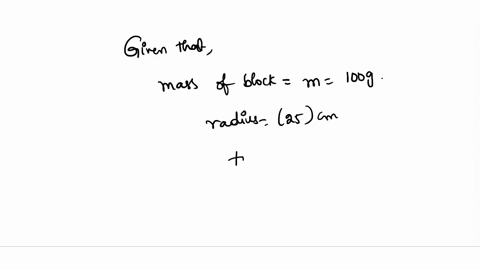 Given that,
mass of block = m = 100g.
radius = (25) cm
+